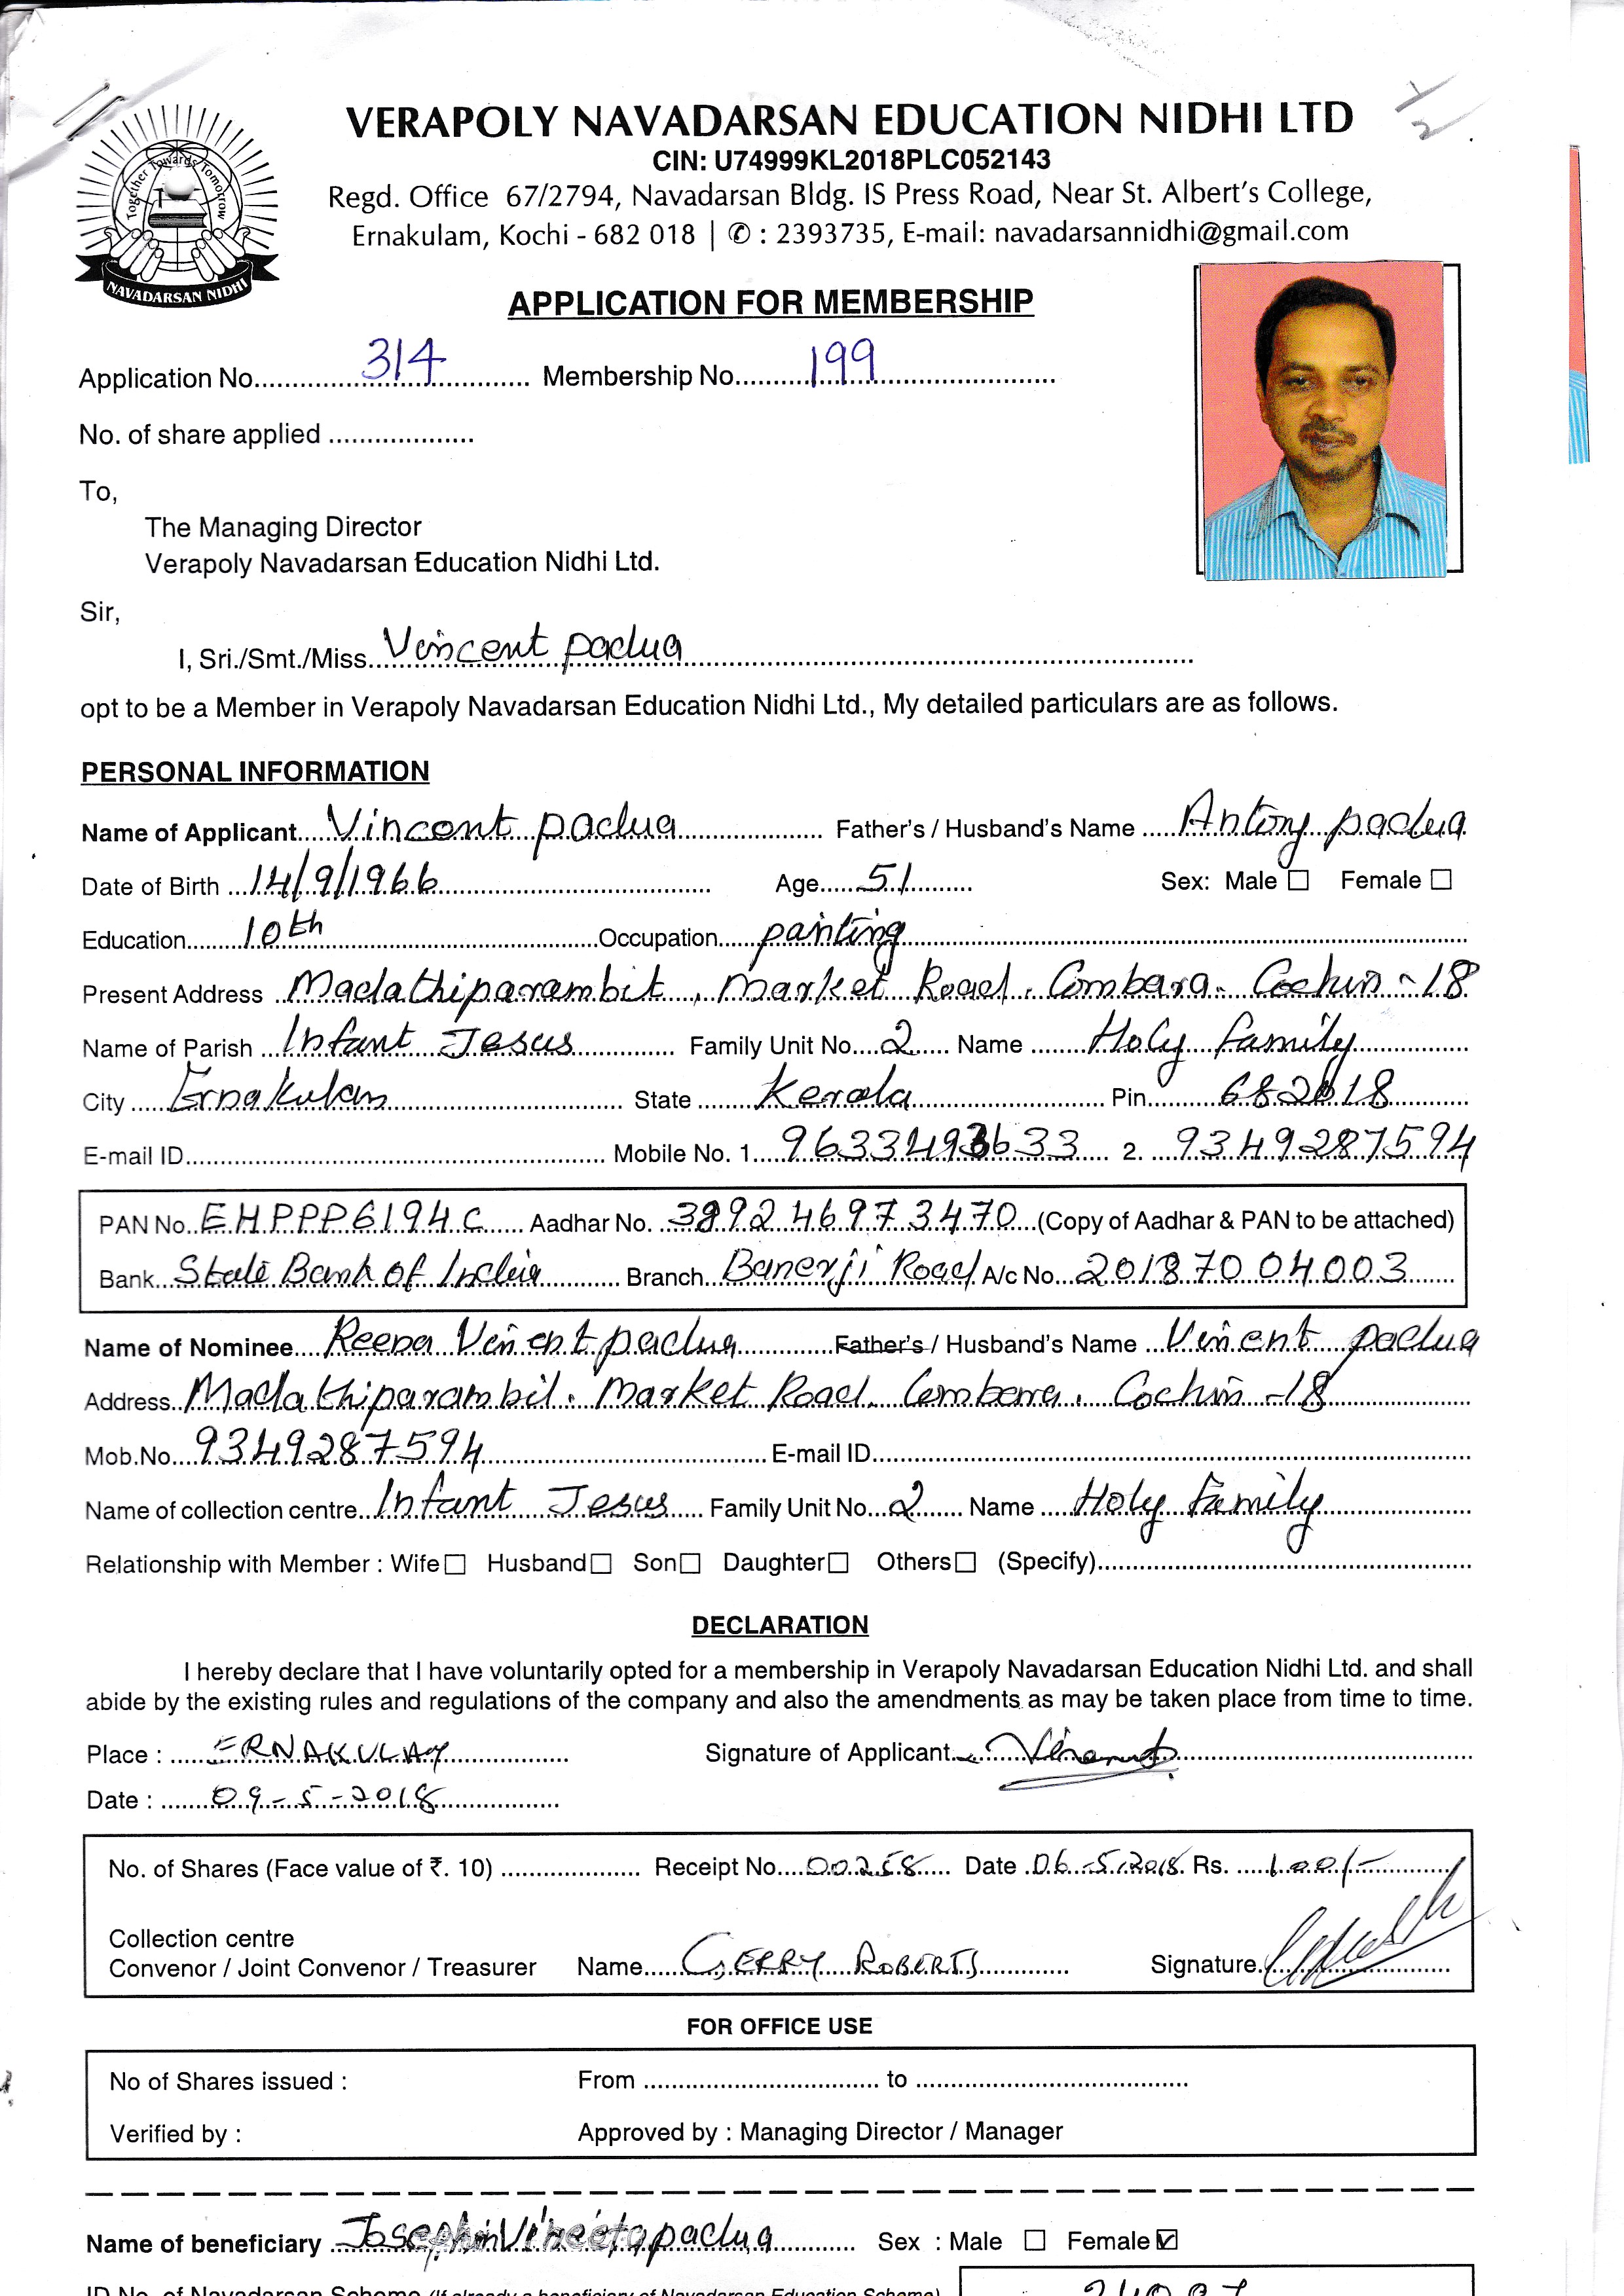 VERAPOLY NAVADARSAN EDUCATION NIDHI LTD
CIN: U74999KL2018PLC052143
Regd. Office 67/2794, Navadarsan Bldg. IS Press Road, Near St. Albert's College,
Ernakulam, Kochi - 682 018 | ✆ : 2393735, E-mail: navadarsannidhi@gmail.com
Together Towards Tomorrow
NAVADARSAN NIDHI
APPLICATION FOR MEMBERSHIP
Application No. 314 Membership No. 199
No. of share applied
To,
The Managing Director
Verapoly Navadarsan Education Nidhi Ltd.
Sir,
I, Sri./Smt./Miss. Vincent padua
opt to be a Member in Verapoly Navadarsan Education Nidhi Ltd., My detailed particulars are as follows.
PERSONAL INFORMATION
Name of Applicant Vincent padua Father's / Husband's Name Antony padua
Date of Birth 14/9/1966 Age 51 Sex: Male ☐ Female ☐
Education 10th Occupation painting
Present Address Madathiparambil, Market Road. Combara. Cochin - 18
Name of Parish Infant Jesus Family Unit No. 2 Name Holy family
City Ernakulam State Kerala Pin 682018
E-mail ID Mobile No. 1. 9633493633 2. 9349287594
PAN No. EHPPP6194C Aadhar No. 389246973470 (Copy of Aadhar & PAN to be attached)
Bank State Bank of India Branch Banerji Road A/c No. 20187004003
Name of Nominee Reena Vincent padua Father's / Husband's Name Vincent padua
Address Madathiparambil. Market Road. Combara. Cochin - 18
Mob.No. 9349287594 E-mail ID
Name of collection centre Infant Jesus Family Unit No. 2 Name Holy Family
Relationship with Member : Wife ☐ Husband ☐ Son ☐ Daughter ☐ Others ☐ (Specify)
DECLARATION
I hereby declare that I have voluntarily opted for a membership in Verapoly Navadarsan Education Nidhi Ltd. and shall
abide by the existing rules and regulations of the company and also the amendments as may be taken place from time to time.
Place : ERNAKULAM Signature of Applicant
Date : 09-5-2018
No. of Shares (Face value of ₹. 10) Receipt No. 00258 Date 06-5-2018 Rs. 100/-
Collection centre
Convenor / Joint Convenor / Treasurer Name GERRY ROBERTS Signature
FOR OFFICE USE
No of Shares issued : From to
Verified by : Approved by : Managing Director / Manager
Name of beneficiary Josephin Vineeta padua Sex : Male ☐ Female ☑
ID No. of Navadarsan Scheme (If already a beneficiary of Navadarsan Education Scheme)